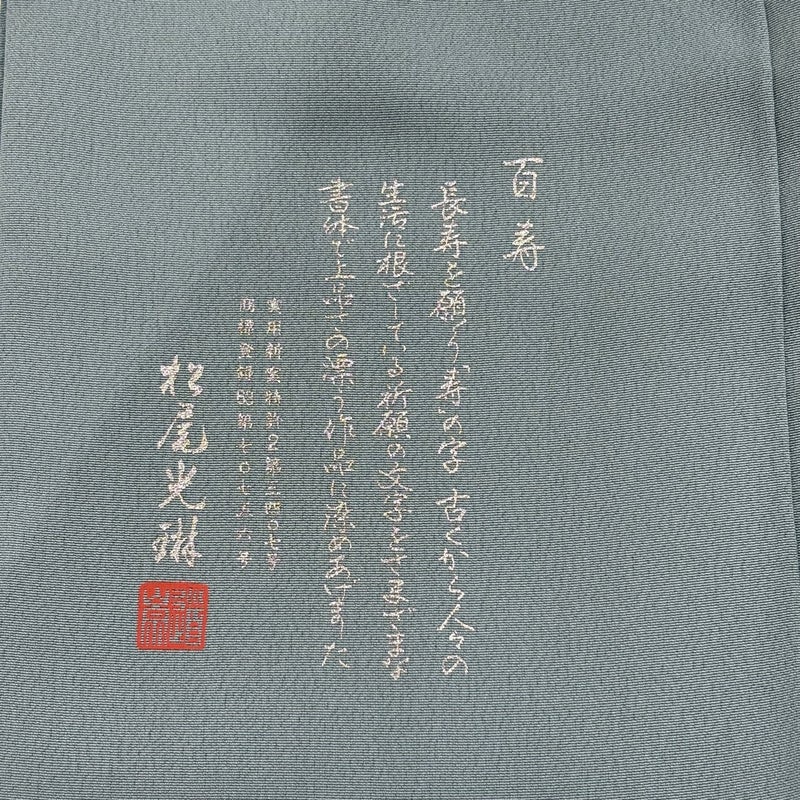 百寿
長寿を願う「寿」の字 古くから人々の
生活に根ざしている祈願の文字をさまざまな
書体で上品さの漂う作品に染めあげました
実用新案特許2第三四〇七号
商標登録63第七〇七五六号
松尾光琳